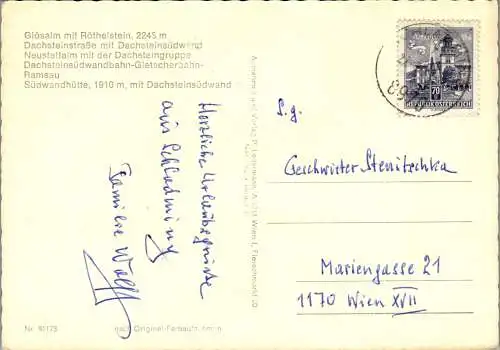 Glösalm mit Röthelstein, 2245 m
Dachsteinstraße mit Dachsteinsüdwand
Neustattalm mit der Dachsteingruppe
Dachsteinsüdwandbahn-Gletscherbahn-
Ramsau
Südwandhütte, 1910 m, mit Dachsteinsüdwand
Herzliche Urlaubsgrüsse
aus Schladming
Familie Wolf
Nr. 30173
nach Original-Farbaufnahmen
Wien I, Fleischmarkt 20
70
REPUBLIK ÖSTERREICH
S.g.
Geschwister Stenitschka
Mariengasse 21
1170 Wien XVII